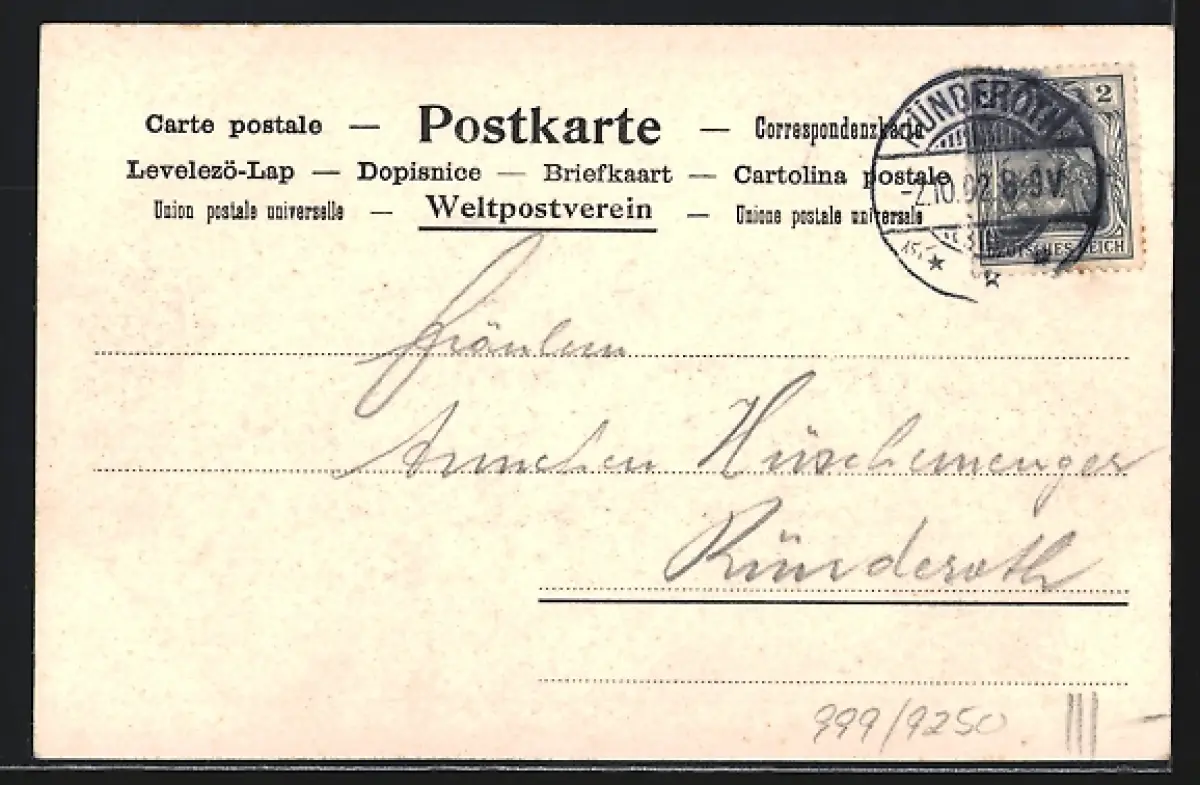 Carte postale — Postkarte — Correspondenzkarte
Levelezö-Lap — Dopisnice — Briefkaart — Cartolina postale
Union postale universelle — Weltpostverein — Unione postale universale
RÜNDEROTH
-2.10.02. 8-9V.
2
DEUTSCHES REICH
Fräulein
Annchen Hüschemenger
Ründeroth
999/9250